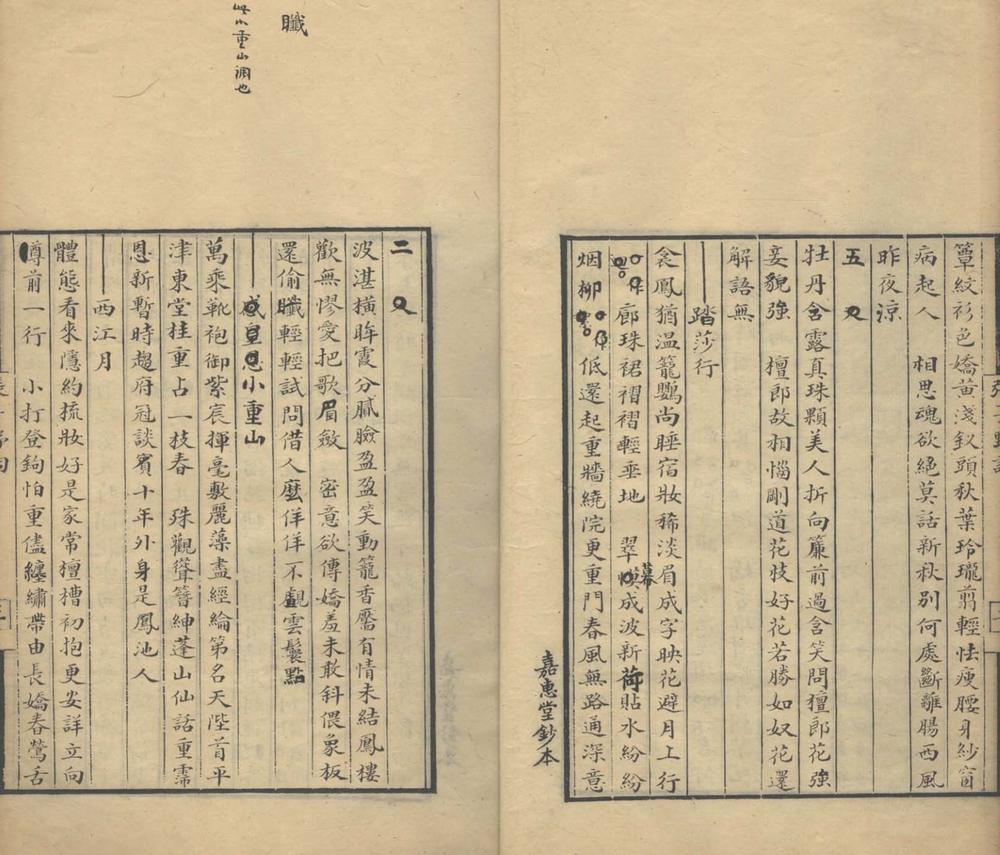 簟紋衫色嬌黃淺釵頭秋葉玲瓏剪輕怯瘦腰身紗窗
病起人　相思魂欲絕莫話新秋別何處斷離腸西風
昨夜涼
五　又
牡丹含露真珠顆美人折向簾前過含笑問檀郎花強
妾貌強　檀郎故相惱剛道花枝好花若勝如奴花還
解語無
踏莎行
衾鳳猶溫籠鸚尚睡宿妝稀淡眉成字映花避月上行
廊珠裙褶褶輕垂地　翠幕成波新荷貼水紛紛
烟柳低還起重牆繞院更重門春風無路通深意
嘉惠堂鈔本
二　又
波湛橫眸霞分膩臉盈盈笑動籠香靨有情未結鳳樓
歡無憀愛把歌眉斂　密意欲傳嬌羞未敢斜偎象板
還偷瞷輕輕試問借人麼佯佯不覷雲鬟點
感皇恩小重山
萬乘靴袍御紫宸揮毫敷麗藻盡經綸第名天陛首平
津東堂桂重占一枝春　殊觀聳簪紳蓬山仙話重霈
恩新暫時趨府冠談賓十年外身是鳳池人
西江月
體態看來隱約梳妝好是家常檀槽初抱更安詳立向
尊前一行　小打登鉤怕重儘纏繡帶由長嬌春鶯舌
此小重山調也